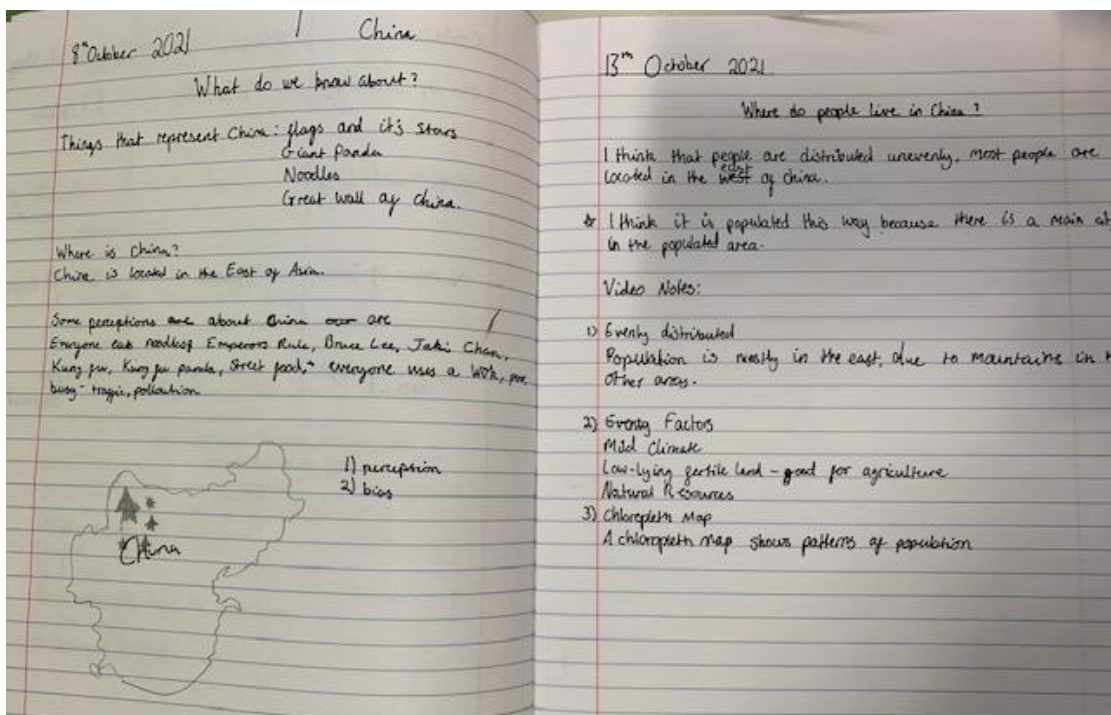 8th October 2021
China
What do we know about?
Things that represent China: flags and it's stars
Giant Panda
Noodles
Great wall of China.
Where is China?
China is located in the East of Asia.
Some perceptions are about China are
Everyone eats noodles, Emperors Rule, Bruce Lee, Jaki Chan,
Kung fu, Kung fu panda, Street food, everyone uses a Wok,
busy traffic, pollution
1) perception
2) bias
China
13th October 2021
Where do people live in China?
I think that people are distributed unevenly, most people are
located in the west east of china.
I think it is populated this way because there is a main
in the populated area.
Video Notes:
1) Evenly distributed
Population is mostly in the east, due to mountains in
other areas.
2) Evenly Factors
Mild Climate
Low-lying fertile land - good for agriculture
Natural Resources
3) Chloropleth Map
A chloropleth map shows patterns of population